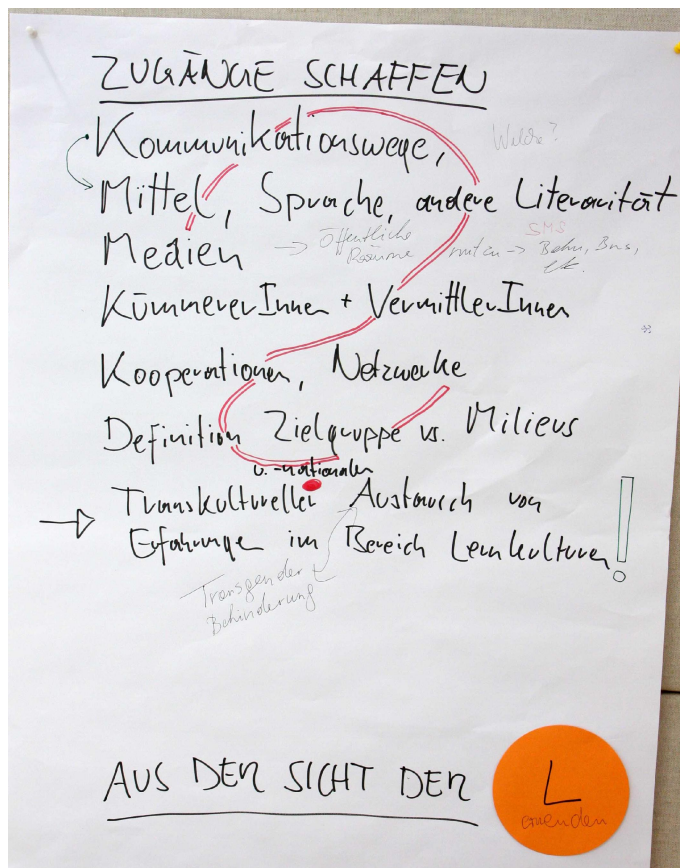 ZUGÄNGE SCHAFFEN
Kommunikationswege,
Welche?
Mittel, Sprache, andere Literarität
SMS
Medien → öffentliche Räume nutzen → Bahn, Bus, etc.
KümmererInnen + VermittlerInnen
Kooperationen, Netzwerke
Definition Zielgruppe vs. Milieus
u. -nationaler
Transkultureller Austausch von
Erfahrungen im Bereich Lernkulturen!
Transgender
Behinderung
AUS DER SICHT DER L
ernenden